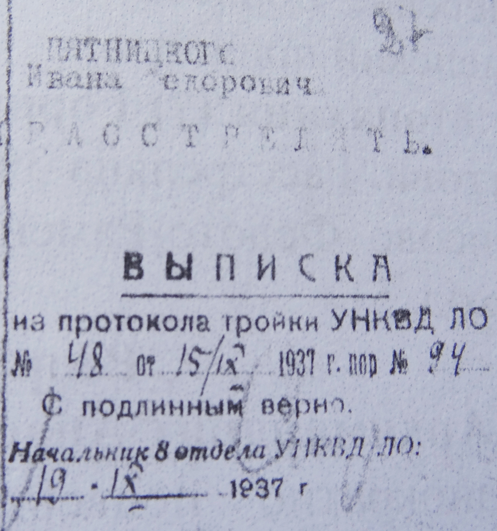 27
ПЯТНИЦКОГО
Ивана Федоровича
РАССТРЕЛЯТЬ.
ВЫПИСКА
из протокола тройки УНКВД ЛО
№ 48 от 15/IX 1937 г. пор № 94
С подлинным верно.
Начальник 8 отдела УНКВД ЛО:
19 · IX 1937 г